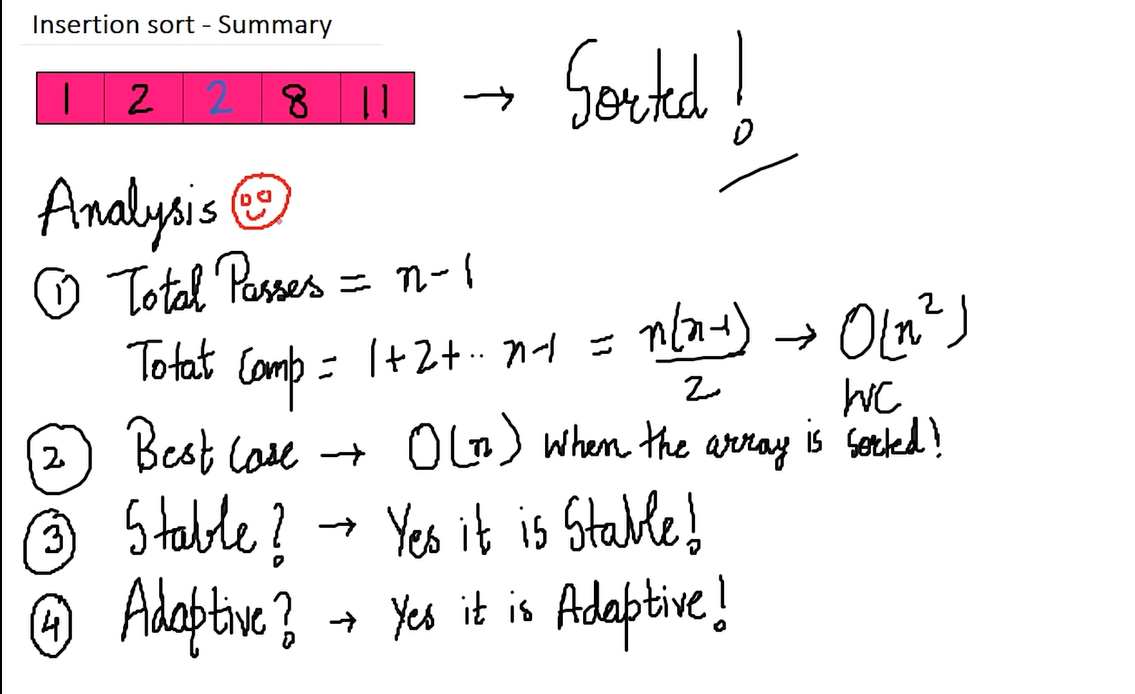 Insertion sort - Summary
1 2 2 8 11 → Sorted!
Analysis
① Total Passes = n-1
Total Comp = 1+2+.. n-1 = n(n-1)/2 → O(n²)
WC
② Best Case → O(n) when the array is sorted!
③ Stable? → Yes it is Stable!
④ Adaptive? → Yes it is Adaptive!